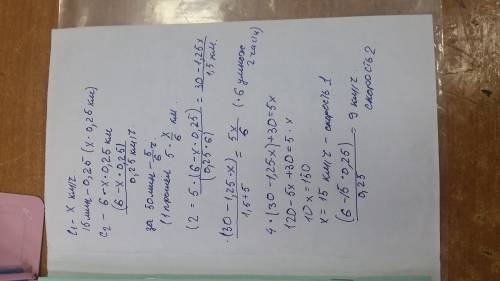 с1 - х км/ч
15 мин - 0,25 (х · 0,25 км)
С2 - 6 - х · 0,25 км
(6 - х · 0,25) / 0,25 км/ч
за 50 мин - 5/6 ч
(1 прошел 5 · х / 6 км.
(2 = 5 · (6 - х · 0,25) / (0,25 · 6) = 30 - 1,25х / 1,5 км.
· (30 - 1,25 · х) / 1,5 + 5 = 5х / 6 (· 6 умнож 2 части)
4 · (30 - 1,25х) + 30 = 5х
120 - 5х + 30 = 5 · х
10х = 150
х = 15 км/ч - скорость 1
(6 - 15 · 0,25) / 0,25 = 9 км/ч
скорость 2